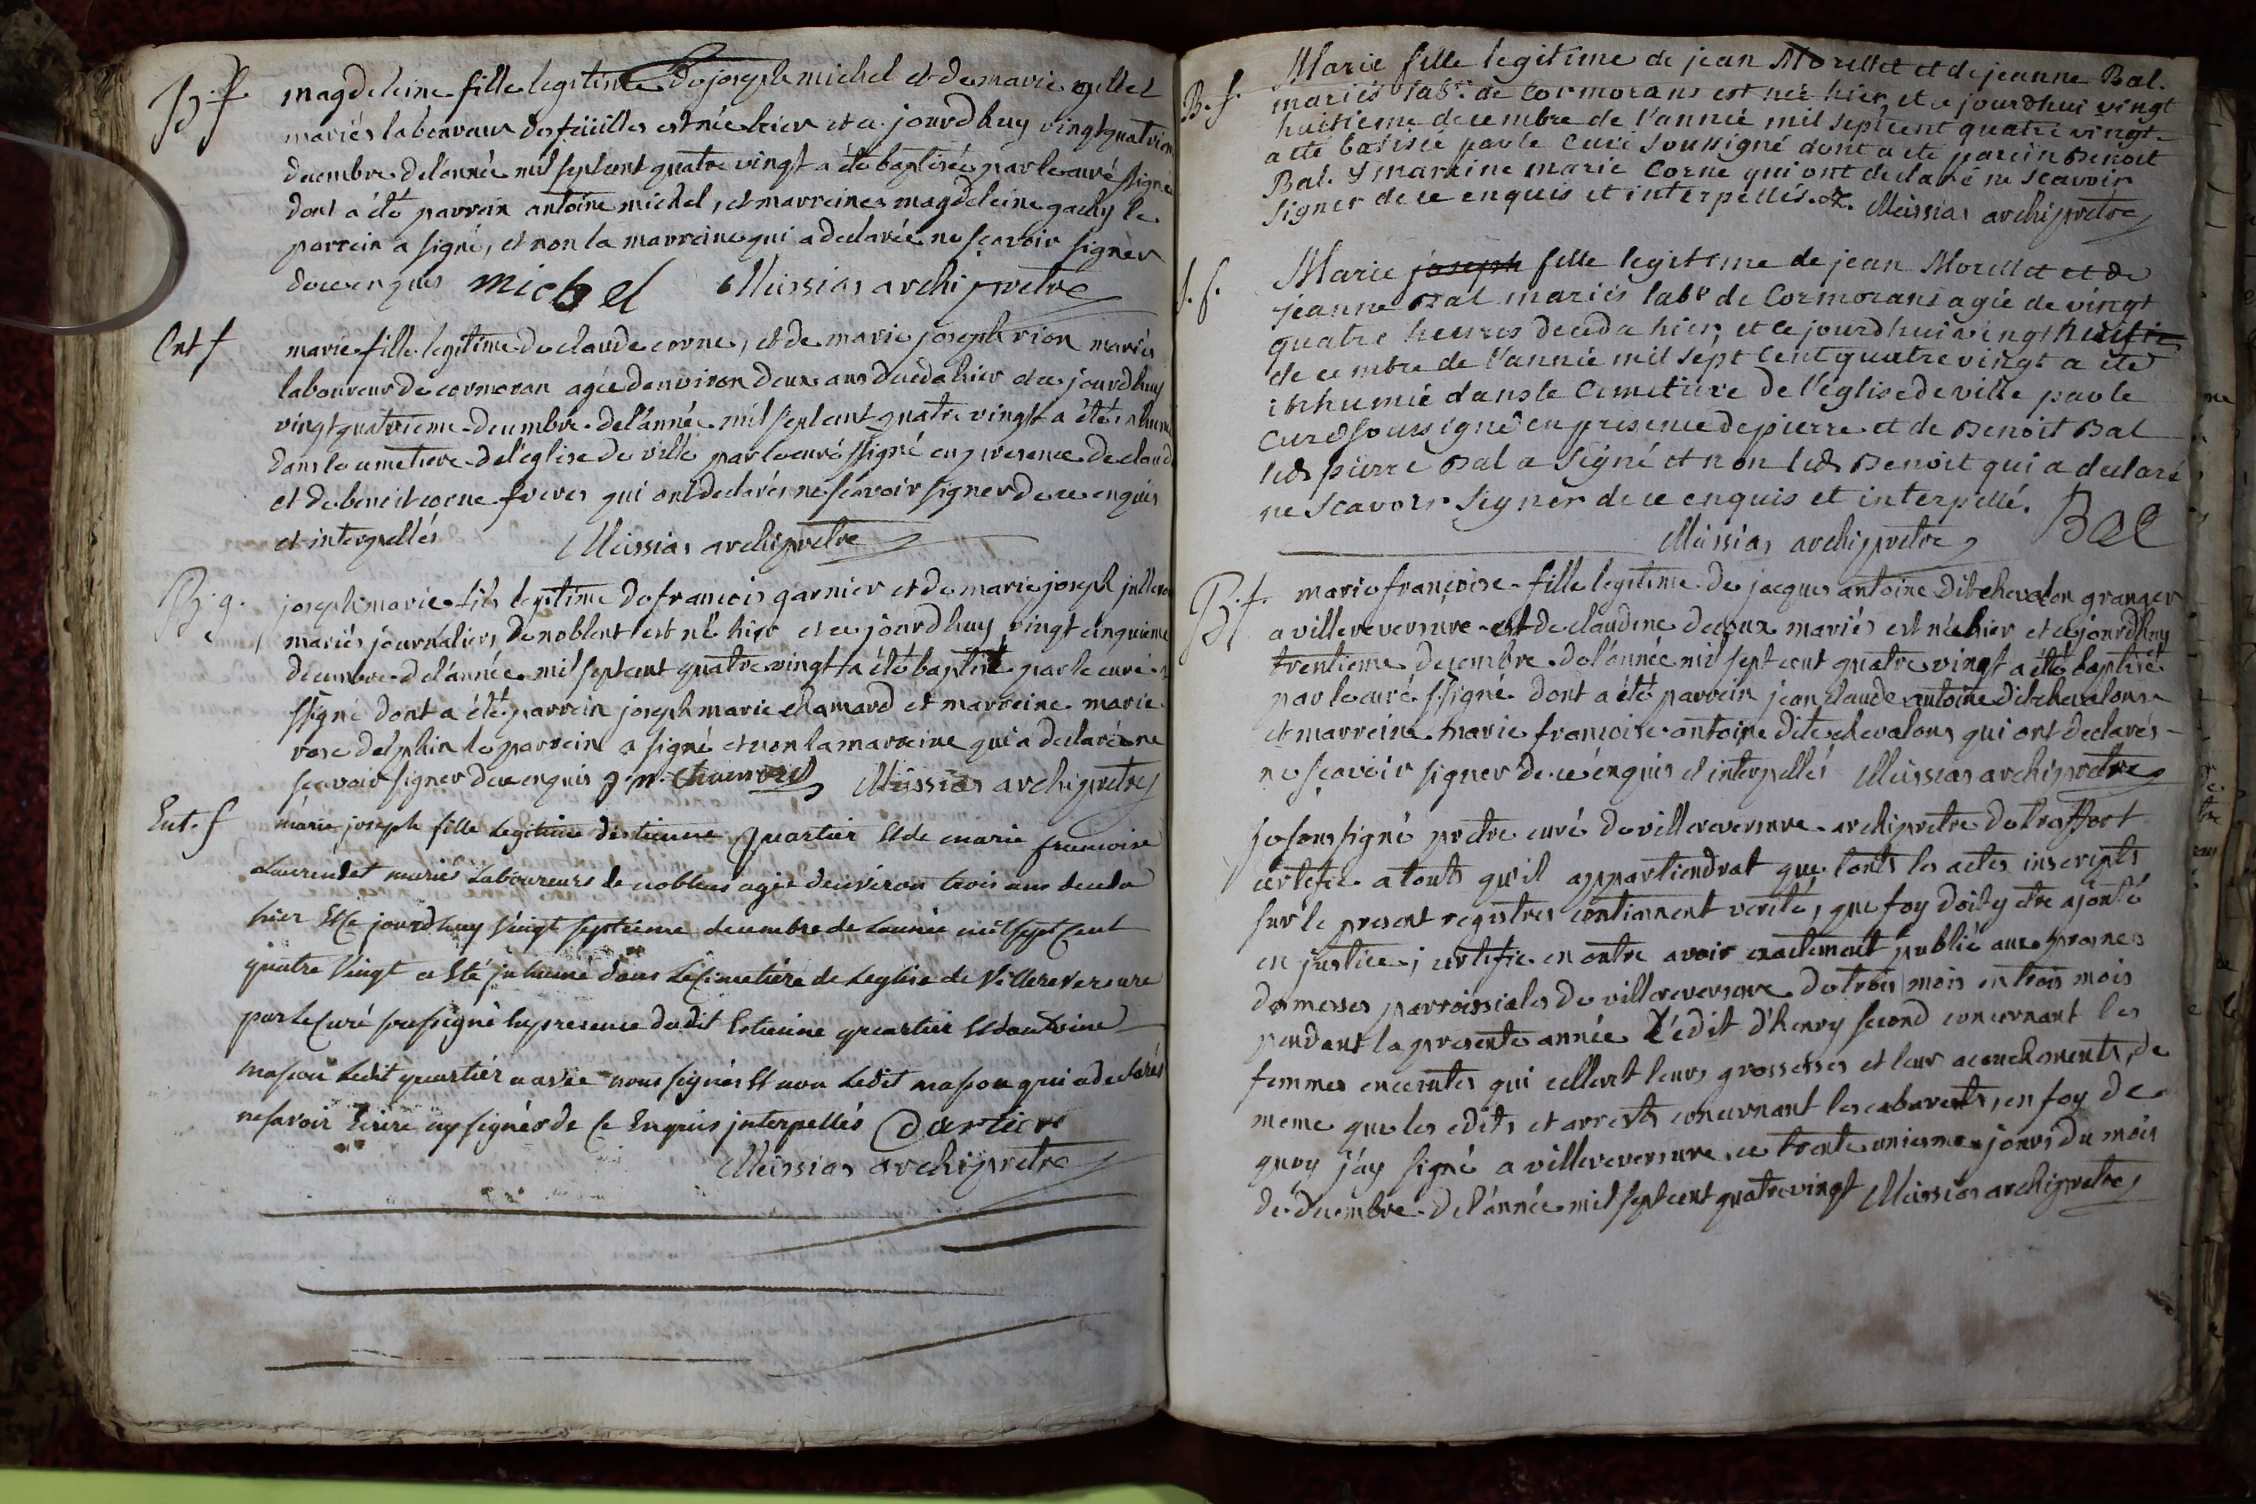 B. f. magdeleine fille legitime de joseph michel et de marie gillet
mariés laboureurs des feüilles est née hier et ce jourd huy vingtquatrieme
decembre de l'année mil sept cent quatre vingt a été baptisée par le curé ssigné
dont a été parrein antoine michel, et marreine magdeleine gachy le
parrein a signé, et non la marreine qui a declarée ne sçavoir signer
de ce enquis michel Messias archipretre
Ent f marie fille legitime de claude corne, et de marie joseph rion mariés
laboureurs de cormoran agée denviron deux ans deceda hier et ce jourd huy
vingtquatrieme decembre de l'année mil sept cent quatre vingt a été inhumé
dans le cimetiere de l'eglise de ville par le curé ssigné en presence de claude
et de benoit corne freres qui ont declarés ne sçavoir signer de ce enquis
et interpellés Messias archipretre
B. g. joseph marie fils legitime de francois garnier et de marie joseph
mariés journaliers de noblens est né hier et ce jourd huy vingt cinquieme
decembre de l'année mil sept cent quatre vingt a été baptisé par le curé
ssigné dont a été parrein joseph marie chamard et marreine marie
rose delphin le parrein a signé et non la marreine qui a declarée ne
sçavoir signer de ce enquis j m. chamard Messias archipretre
Ent. f marie joseph fille legitime destienne quartier et de marie francoise
Laurendet mariés Laboureurs de noblens agée denviron trois ans deceda
hier et Ce jourd huy Vingt septieme decembre de Lannée mil sept Cent
quatre Vingt a Eté inhumé dans Le Cimetiere de Leglise de Villereversure
par le Curé soussigné En presence dudit Estienne quartier et dantoine
masson Ledit quartier a avec nous signés et non Ledit masson qui a declarés
ne savoir Ecrire ny signér de Ce Enquis interpellés Cartier
Messias archipretre
B. f. Marie fille legitime de jean Morellet et de jeanne Bal.
mariés labrs de Cormorans est née hier, et ce jourdhui vingt
huitieme decembre de l'année mil sept cent quatre vingt
a été batisée par le Curé soussigné dont a été parein Benoit
Bal. & maraine marie Corne qui ont declaré ne scavoir
signer de ce enquis et interpellés. Messias archipretre
f. Marie joseph fille legitime de jean Morellet et de
jeanne Bal mariés labr de Cormorans agée de vingt
quatre heures deceda hier, et ce jourdhui vingt huitie
decembre de l'année mil sept Cent quatre vingt a été
inhumée dans le Cimetiere de l'église de ville par le
Curé soussigné en presence de pierre et de Benoit Bal
led pierre Bal a signé et non led Benoit qui a declaré
ne scavoir signer de ce enquis et interpellé. Bal
Messias archipretre
B. f. marie françoise fille legitime de jacques antoine dit chevalon granger
a villereversure et de claudine decoux mariés est née hier et ce jourd huy
trentieme decembre de l'année mil sept cent quatre vingt a été baptisée
par le curé ssigné dont a été parrein jean claude antoine dit chevalons
et marreine marie francoise antoine dite chevalons qui ont declarés
ne sçavoir signer de ce énquis et interpellés Messias archipretre
je soussigné pretre curé de villereversure archipretre de treffort
certifie a touts qu'il appartiendrat que touts les actes inscripts
sur le present registres contiennent verité, que foy doit y etre ajouté
en justice; certifie en outre avoir exactement publié aux prones
des messes parroissiales de villereversure de trois mois en trois mois
pendant la presente année l'édit d'henry second concernant les
femmes enceintes qui cellent leurs grossesses et leur acouchements, de
meme que les edits et arrests concernant les cabarets, en foy de
quoy j'ay signé a villereversure ce trente uniesme jours du mois
de decembre de l'année mil sept cent quatrevingt Messias archipretre